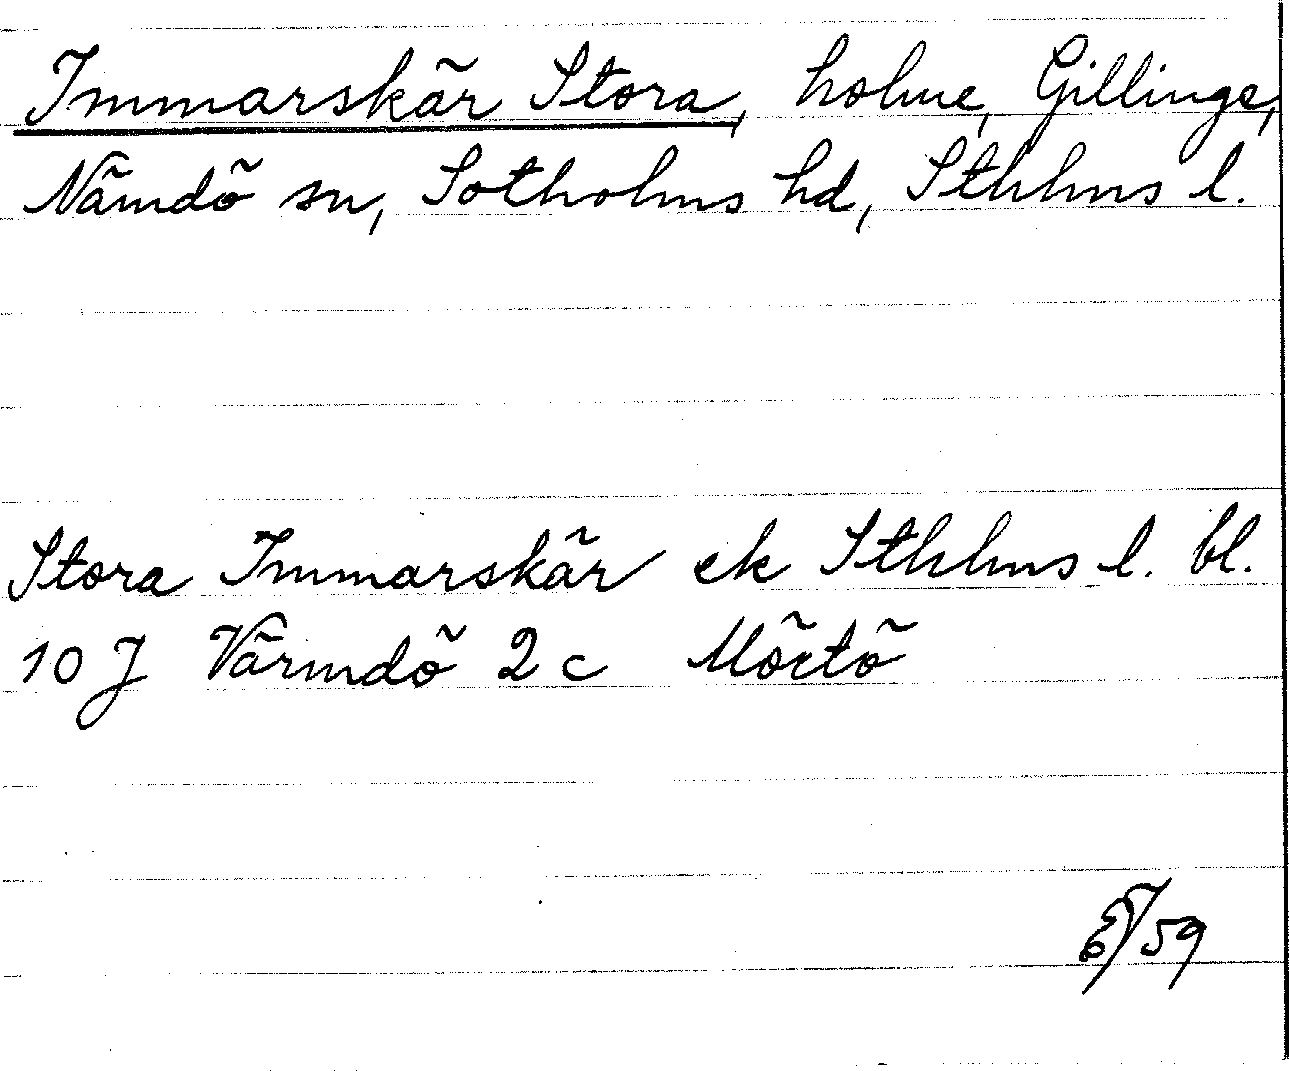 Immarskär Stora, holme, Gillinge,
Nämdö sn, Sotholms hd, Sthlms l.
Stora Immarskär ek Sthlms l. bl.
10 J Värmdö 2 c Mörtö
/59